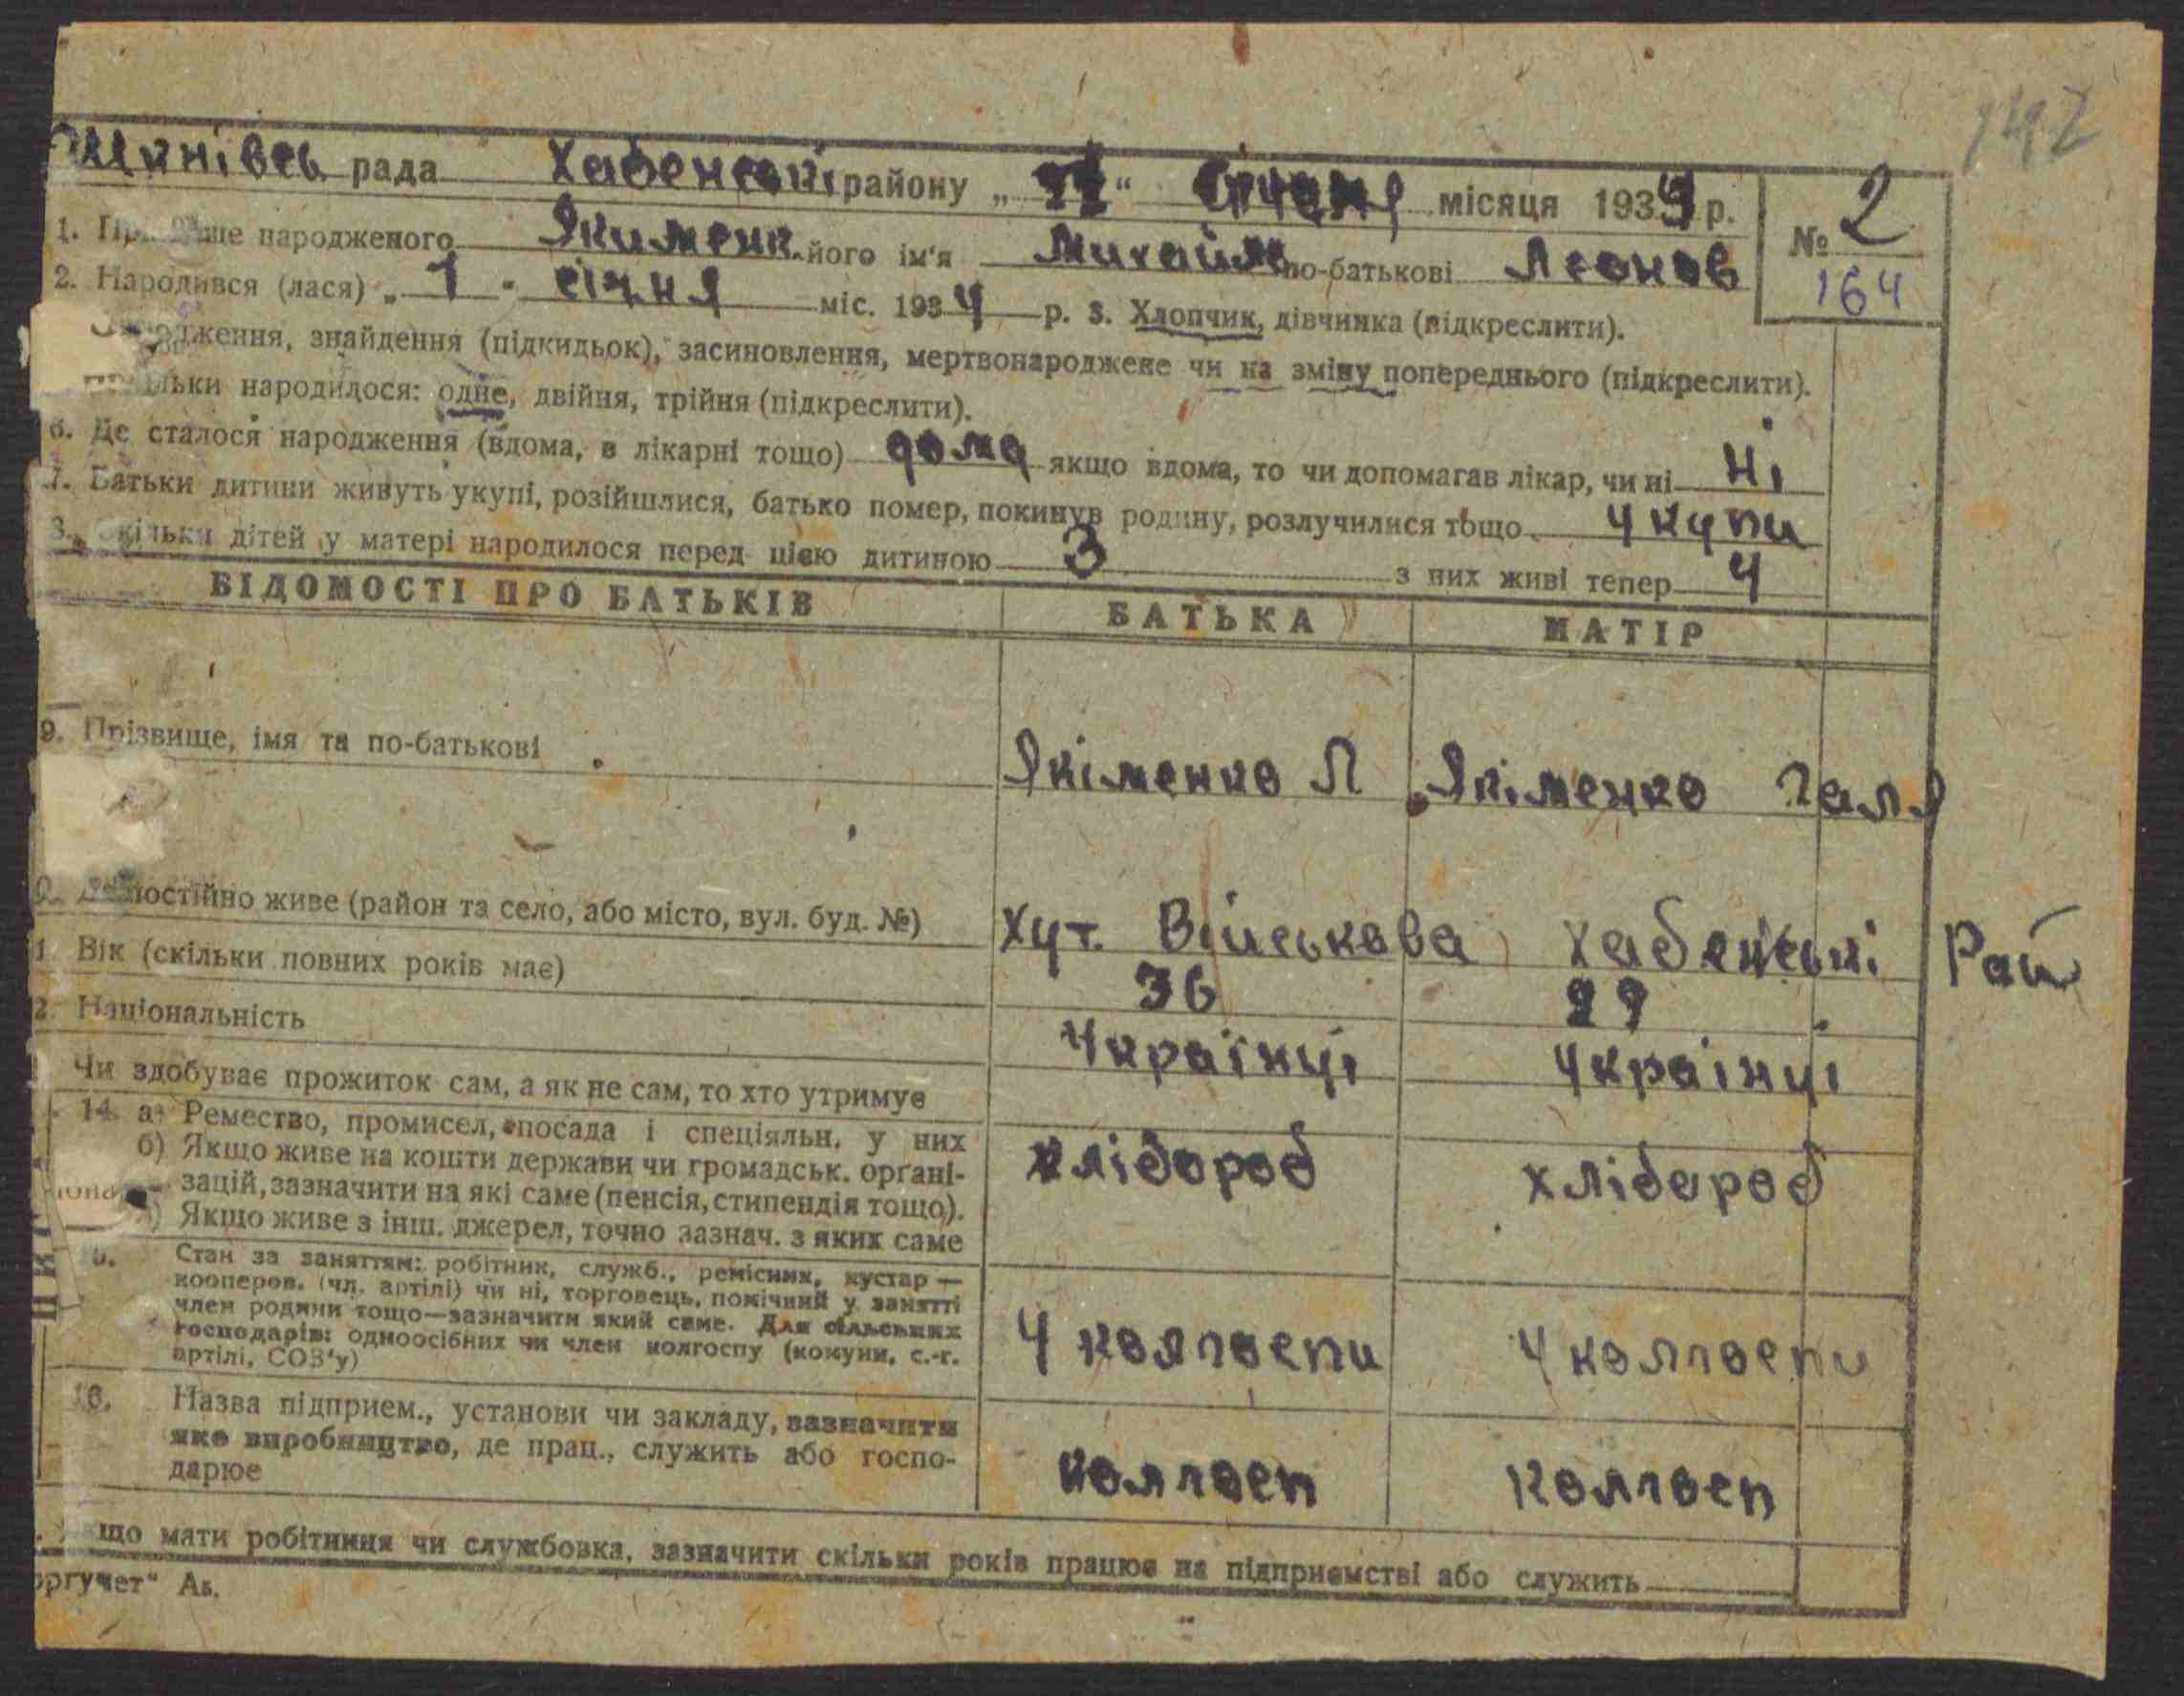 142
рада Хабенські району „ “ Січня місяця 1934 р.
№ 2
164
1. ще народженого Якименк його ім'я Михайло по-батькові Леонов
2. Народився (лася) „ 1 “ січня міс. 1934 р. 3. Хлопчик, дівчинка (підкреслити).
знайдення (підкидьок), засиновлення, мертвонароджене чи на зміну попереднього (підкреслити).
народилося: одне, двійня, трійня (підкреслити).
6. Де сталося народження (вдома, в лікарні тощо) дома якщо вдома, то чи допомагав лікар, чи ні Ні
7. Батьки дитини живуть укупі, розійшлися, батько помер, покинув родину, розлучилися тощо укупи
8. Скільки дітей у матері народилося перед цією дитиною 3 з них живі тепер 4
ВІДОМОСТІ ПРО БАТЬКІВ БАТЬКА МАТІР
9. Прізвище, імя та по-батькові Якіменко Л Якіменко Галя
постійно живе (район та село, або місто, вул. буд. №) Хут. Військова Хабенські Рай
1. Вік (скільки повних років має) 36 29
2. Національність Українці Українці
Чи здобуває прожиток сам, а як не сам, то хто утримує
14. а) Ремество, промисел, посада і спеціяльн. у них хлібороб хлібороб
б) Якщо живе на кошти держави чи громадськ. органі-
зацій, зазначити на які саме (пенсія, стипендія тощо).
Якщо живе з інш. джерел, точно зазнач. з яких саме
Стан за заняттям: робітник, служб., ремісник, кустар —
кооперов. (чл. артілі) чи ні, торговець, помічний у занятті
член родини тощо—зазначити який саме. Для сільських
господарів: одноосібних чи член колгоспу (комуни, с.-г.
артілі, СОЗ'у) У колгоспи У колгоспи
16. Назва підприєм., установи чи закладу, зазначити
яке виробництво, де прац., служить або госпо-
дарює колгосп колгосп
що мати робітниця чи службовка, зазначити скільки років працює на підприємстві або служить
оргучет“ Аб.